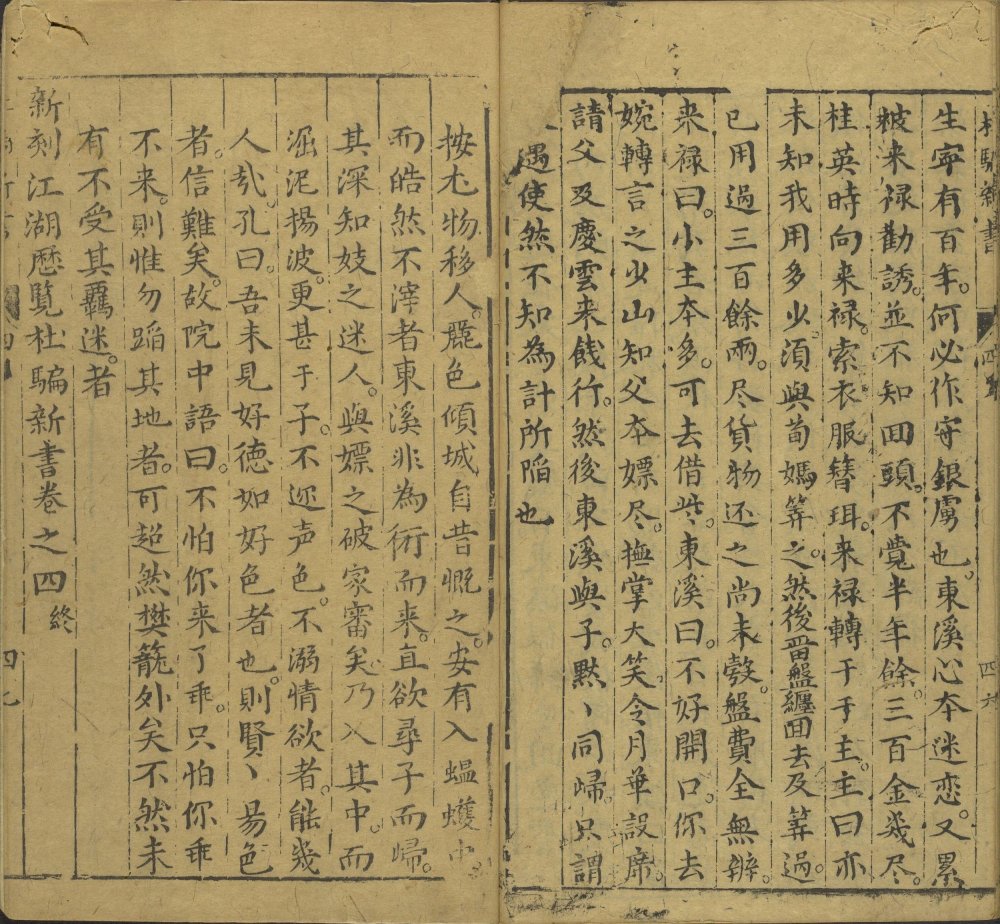 杜騙新書
四卷
四六
生寧有百年。何必作守銀虜也。東溪心本迷恋。又累
被来禄勸誘。並不知囬頭。不覺半年餘。三百金幾尽。
桂英時向来禄。索衣服簪珥。来禄轉于子主。主曰亦
未知我用多少。須與荀媽筭之。然後畱盤纏囬去。及筭過。
已用過三百餘両。尽貨物还之尚未彀。盤費全無辦。
来禄曰。小主本多。可去借些。東溪曰。不好開口。你去
婉轉言之。少山知父本嫖尽。撫掌大笑。令月華設席。
請父及慶雲来餞行。然後東溪與子。黙〻同歸。只謂
遇使然不知為計所陷也
按尤物移人。麗色傾城自昔慨之。安有入蝹蠖中。
而皓然不滓者東溪非為術而来。直欲尋子而歸。
其深知妓之迷人。與嫖之破家審矣乃入其中。而
淈泥揚波。更甚于子。不迩声色。不溺情欲者。能幾
人㢤。孔曰。吾未見好德如好色者也。則賢〻易色
者。信難矣。故院中語曰。不怕你来了乖。只怕你乖
不来。則惟勿蹈其地者。可超然樊籠外矣不然未
有不受其羈迷。者
新刻江湖歷覽杜騙新書卷之四 終
四七